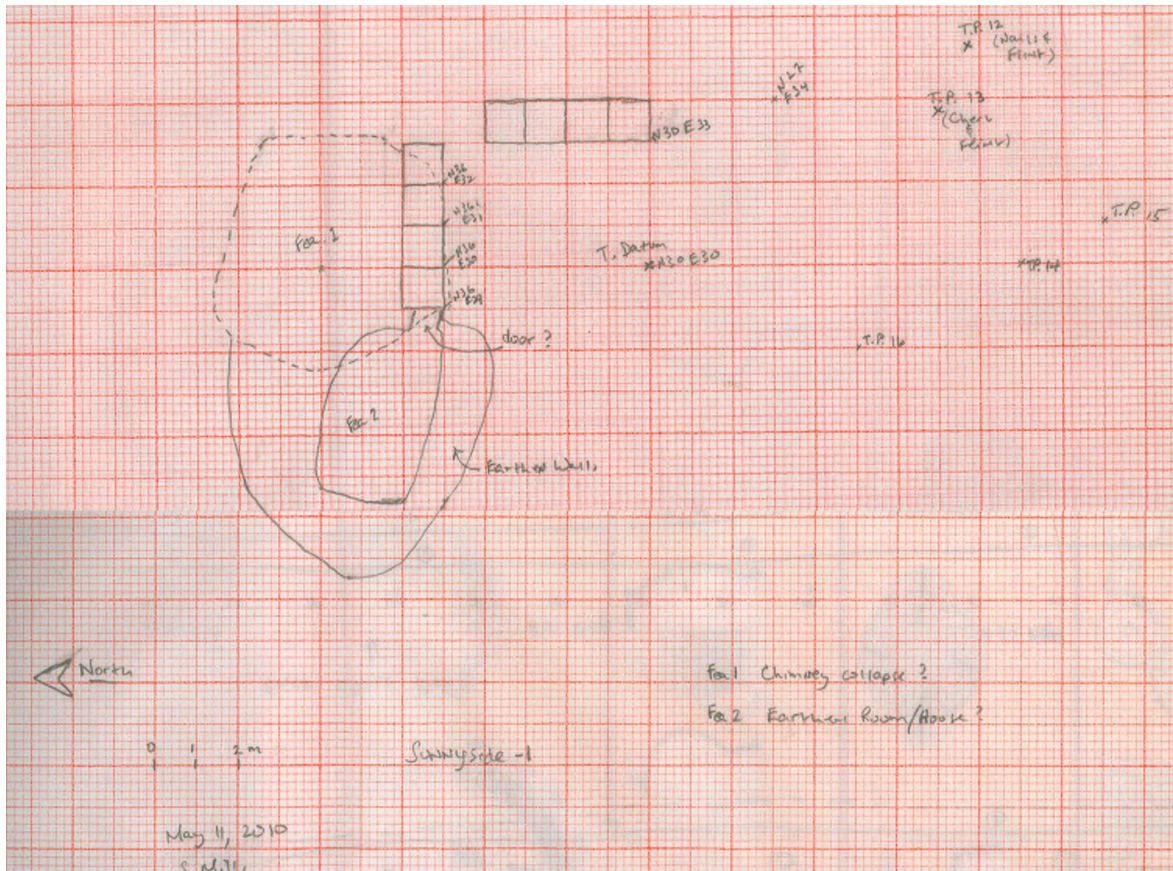 T.P. 12
(Nails &
Flint)
N27
E34
T.P. 13
(Chert
&
Flint)
N30 E33
N36
E32
N36
E31
T.P. 15
Fea. 1
N36
E30
T. Datum
N30 E30
T.P. 14
N36
E29
door ?
T.P. 16
Fea 2
Earthen Walls
North
Fea 1 Chimney collapse ?
Fea 2 Earthen Room/House ?
0 1 2 m
Sunnyside -1
May 11, 2010